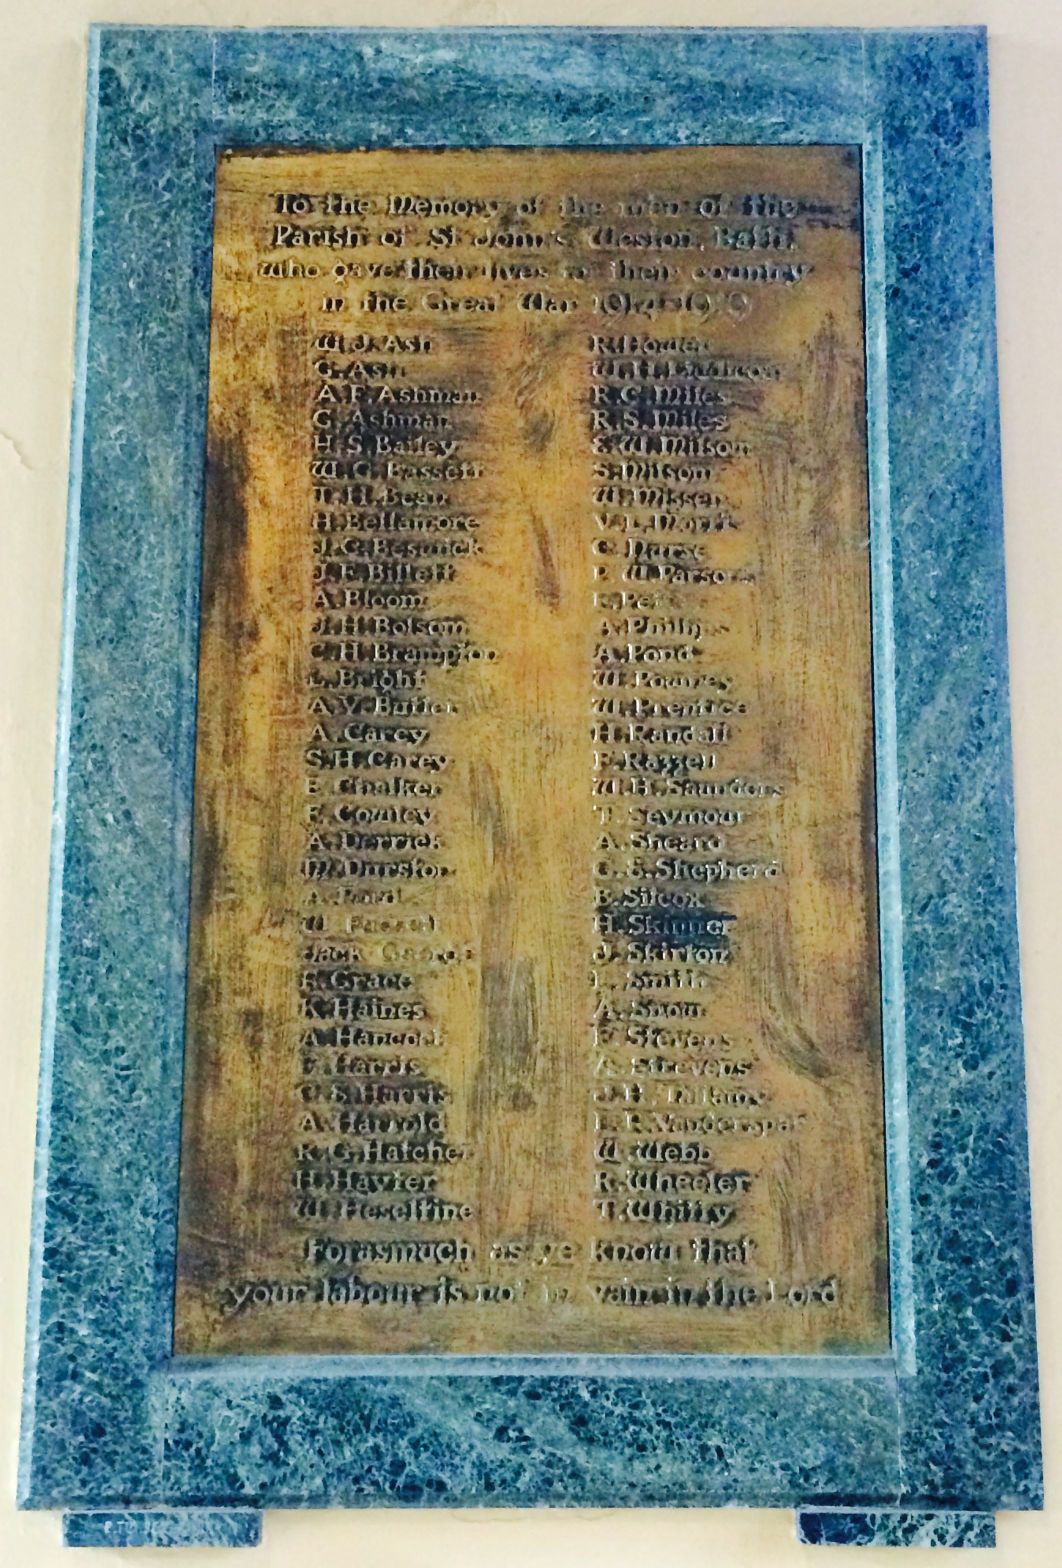 To the Memory of the men of the
Parish of St John's Weston, Bath,
who gave their lives for their country
in the Great War
W.J.R.Ash
G.Ash
A.F.Ashman
G.A.
H.S.Bailey
W.C.Bassett
W.H.J.Bean
H.Bellamore
L.G.Besance
A.E.Billett
A.R.Bloom
H.H.Bolson
G.H.Brampton
A.Bright
A.V.Butler
A.Carey
S.H.Carey
E.Chalker
F.G.Counley
A.J.Currie
W.Dunston
W.Fussell
Jack George
R.Grant
A.Haines
F.Hancock
F.Harris
A.S.Harris
A.Harvole
R.G.Hatcher
H.Havter
W.Heseltine
R.J.Horler
W.H.Ladlow
R.G.Milne
R.S.Mintle
S.Mitchell
W.Missen
V.L.Morris
C.Nurse
F.W.Parson
S.Pell
A.Philip
A.Pond
W.J.Powney
W.Prentice
H.Randell
F.Rappell
W.H.Saunders
T.Seymour
A.C.Shearn
C.E.Shepherd
P.Silcox
H.Skinner
J.Skuron
J.Smith
A.J.Snow
C.Stevens
A.Stevens
P.H.Tillard
W.Webb
R.Wheeler
T.Whitty
Forasmuch as ye know that
your labour is not in vain in the Lord